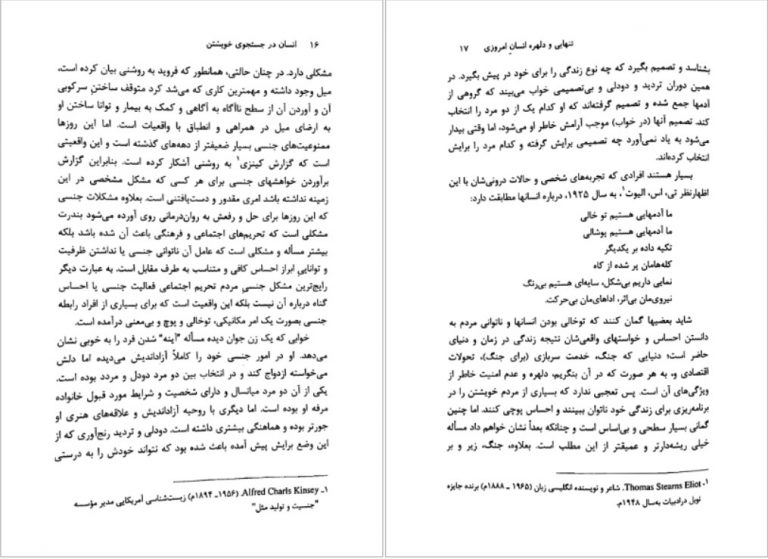 ۱۶ انسان در جستجوی خویشتن
مشکلی دارد. در چنان حالتی، همانطور که فروید به روشنی بیان کرده است،
میل وجود داشته و مهمترین کاری که می‌شد کرد متوقف ساختن سرکوبی
آن و آوردن آن از سطح ناآگاه به آگاهی و کمک به بیمار و توانا ساختن او
به ارضای میل در همراهی و انطباق با واقعیات است. اما این روزها
ممنوعیت‌های جنسی بسیار ضعیفتر از دهه‌های گذشته است و این واقعیتی
است که گزارش کینزی۱ به روشنی آشکار کرده است. بنابراین گزارش
برآوردن خواهشهای جنسی برای هر کسی که مشکل مشخصی در این
زمینه نداشته باشد امری مقدور و دست‌یافتنی است. بعلاوه مشکلات جنسی
که این روزها برای حل و رفعش به روان‌درمانی روی آورده می‌شود بندرت
مشکلی است که تحریم‌های اجتماعی و فرهنگی باعث آن شده باشد بلکه
بیشتر مسأله و مشکلی است که عامل آن ناتوانی جنسی یا نداشتن ظرفیت و
توانایی ابراز احساس کافی و متناسب به طرف مقابل است. به عبارت دیگر
رایج‌ترین مشکل جنسی مردم تحریم اجتماعی فعالیت جنسی یا احساس
گناه درباره آن نیست بلکه این واقعیت است که برای بسیاری از افراد رابطه
جنسی بصورت یک امر مکانیکی، توخالی و پوچ و بی‌معنی درآمده است.
خوابی که یک زن جوان دیده مسأله "آینه" شدن فرد را به خوبی نشان
می‌دهد. او در امور جنسی خود را کاملاً آزاداندیش می‌دیده اما دلش
می‌خواسته ازدواج کند و در انتخاب بین دو مرد دودل و مردد بوده است.
یکی از آن دو مرد میانسال و دارای شخصیت و شرایط مورد قبول خانواده
مرفه او بوده است. اما دیگری با روحیه آزاداندیش و علاقه‌های هنری او
جورتر بوده و هماهنگی بیشتری داشته است. دودلی و تردید رنج‌آوری که از
این وضع برایش پیش آمده باعث شده بود که نتواند خودش را به درستی
۱ـ Alfred Charls Kinsey. (۱۹۵۶ ـ ۱۸۹۴م) زیست‌شناسی آمریکایی مدیر مؤسسه
"جنسیت و تولید مثل"
تنهایی و دلهره انسان امروزی ۱۷
بشناسد و تصمیم بگیرد که چه نوع زندگی را برای خود در پیش بگیرد. در
همین دوران تردید و دودلی و بی‌تصمیمی خواب می‌بیند که گروهی از
آدمها جمع شده و تصمیم گرفته‌اند که او کدام یک از دو مرد را انتخاب
کند. تصمیم آنها (در خواب) موجب آرامش خاطر او می‌شود، اما وقتی بیدار
می‌شود به یاد نمی‌آورد چه تصمیمی برایش گرفته و کدام مرد را برایش
انتخاب کرده‌اند.
بسیار هستند افرادی که تجربه‌های شخصی و حالات درونی‌شان با این
اظهارنظر تی، اس، الیوت۱، به سال ۱۹۲۵، درباره انسانها مطابقت دارد:
ما آدمهایی هستیم تو خالی
ما آدمهایی هستیم پوشالی
تکیه داده بر یکدیگر
کله‌هامان پر شده از کاه
نمایی داریم بی‌شکل، سایه‌ای هستیم بی‌رنگ
نیروی‌مان بی‌اثر، اداهای‌مان بی‌حرکت.
شاید بعضیها گمان کنند که توخالی بودن انسانها و ناتوانی مردم به
دانستن احساس و خواستهای واقعی‌شان نتیجه زندگی در زمان و دنیای
حاضر است؛ دنیایی که جنگ، خدمت سربازی (برای جنگ)، تحولات
اقتصادی و، به هر صورت که در آن بنگریم، دلهره و عدم امنیت خاطر از
ویژگی‌های آن است. پس تعجبی ندارد که بسیاری از مردم خویشتن را در
برنامه‌ریزی برای زندگی خود ناتوان ببینند و احساس پوچی کنند. اما چنین
گمانی بسیار سطحی و بی‌اساس است و چنانکه بعداً نشان خواهم داد مسأله
خیلی ریشه‌دارتر و عمیقتر از این مطلب است. بعلاوه، جنگ، زیر و بر
۱ـ Thomas Stearns Eliot. شاعر و نویسنده انگلیسی زبان (۱۹۶۵ ـ ۱۸۸۸م) برنده جایزه
نوبل درادبیات به‌سال ۱۹۴۸م.